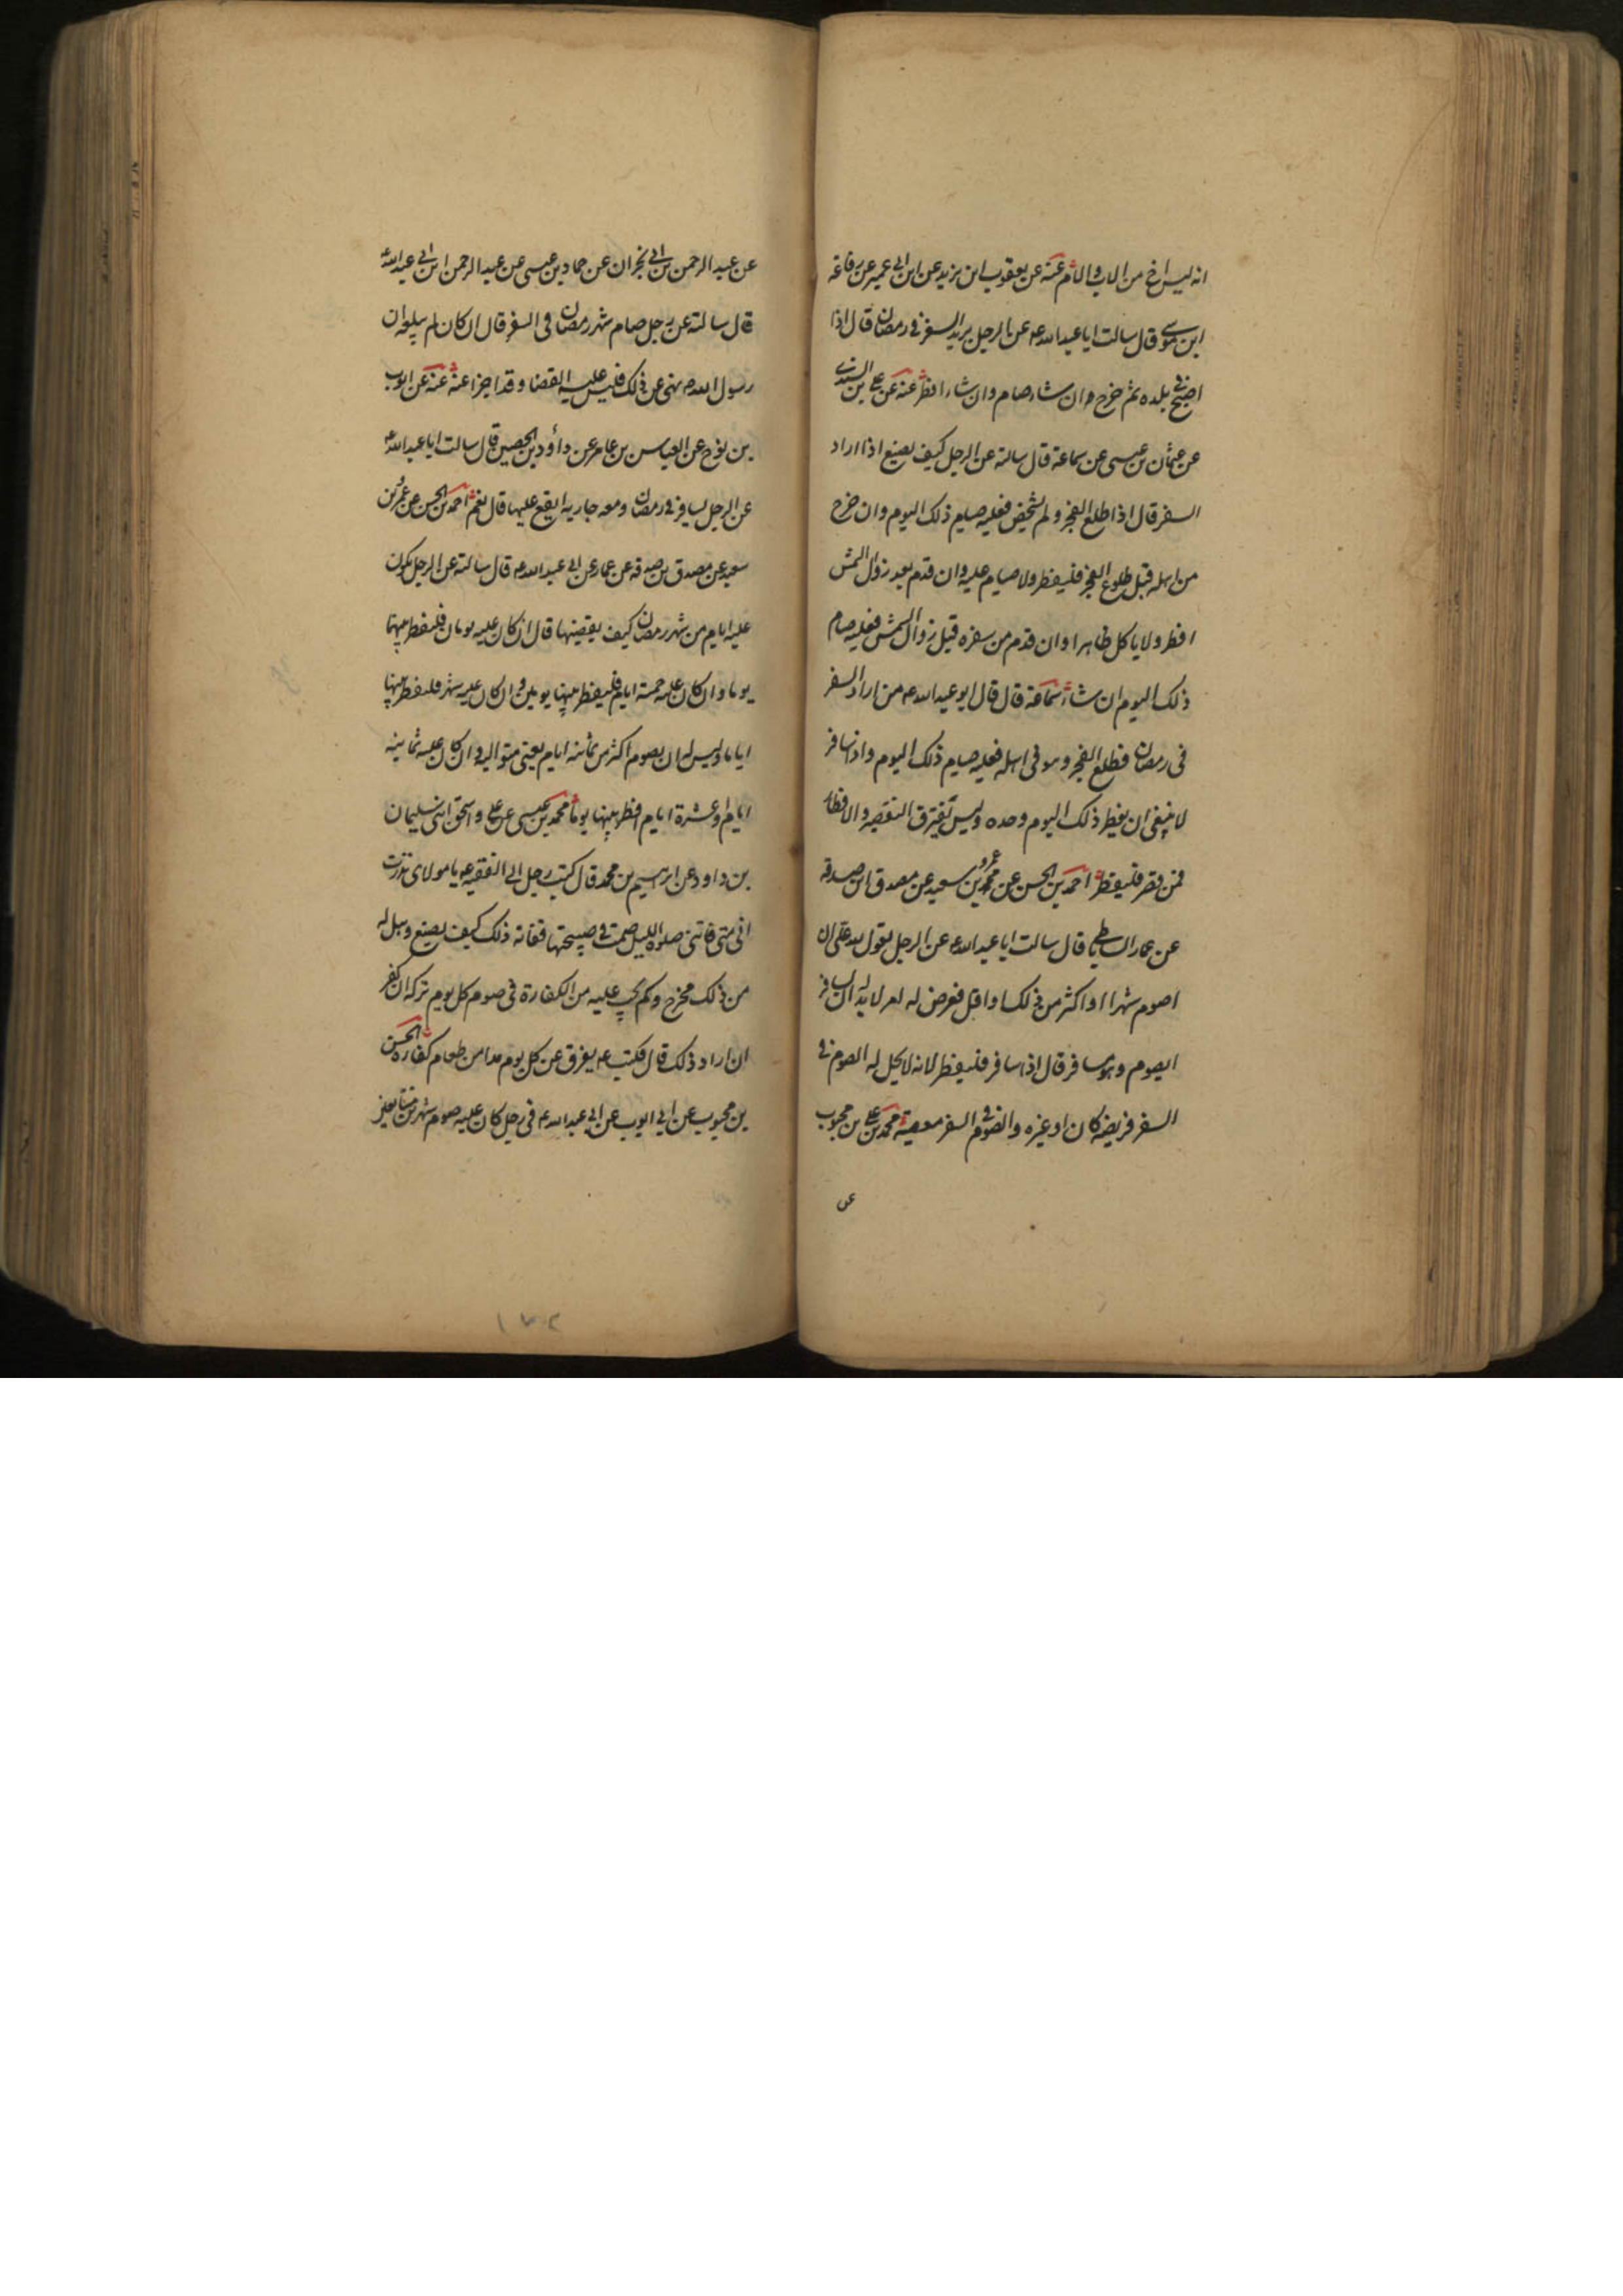 انه ليس اخ من الاب والام عنه عن يعقوب ابن يزيد عن ابن ابي عمير عن رفاعة
ابن موسى قال سالت ابا عبد الله ع عن الرجل يريد السفر في رمضان قال اذا
اصبح في بلده ثم خرج فان شاء صام وان شاء افطر عنه عن علي بن السندي
عن عثمان بن عيسى عن سماعة قال سالته عن الرجل كيف يصنع اذا اراد
السفر قال اذا طلع الفجر ولم يشخص فعليه صيام ذلك اليوم وان خرج
من اهله قبل طلوع الفجر فليفطر ولا صيام عليه وان قدم بعد زوال الشمس
افطر ولا ياكل ظاهرا وان قدم من سفره قبل زوال الشمس فعليه صيام
ذلك اليوم ان شاء سماعة قال قال ابو عبد الله ع من اراد السفر
في رمضان فطلع الفجر وهو في اهله فعليه صيام ذلك اليوم واذا سافر
لا ينبغي ان يفطر ذلك اليوم وحده وليس يفترق التقصير والافطار
فمن قصر فليفطر احمد بن الحسن عن عمرو بن سعيد عن مصدق ابن صدقة
عن عمار الساباطي قال سالت ابا عبد الله ع عن الرجل يقول لله علي ان
اصوم شهرا او اكثر من ذلك او اقل فعرض له امر لا بد له ان يسافر
ايصوم وهو مسافر قال اذا سافر فليفطر لانه لا يحل له الصوم في
السفر فريضة كان او غيره والصوم في السفر معصية محمد بن علي بن محبوب
عن
عن عبد الرحمن بن ابي نجران عن حماد بن عيسى عن عبد الرحمن ابن ابي عبد الله
قال سالته عن رجل صام شهر رمضان في السفر قال ان كان لم يبلغه ان
رسول الله ص نهى عن ذلك فليس عليه القضا وقد اجزا عنه عنه عن ايوب
بن نوح عن العباس بن عامر عن داؤد بن الحصين قال سالت ابا عبد الله ع
عن الرجل يسافر في رمضان ومعه جارية ايقع عليها قال نعم احمد بن الحسن عن عمرو بن
سعيد عن مصدق بن صدقة عن عمار عن ابي عبد الله ع قال سالته عن الرجل يكون
عليه ايام من شهر رمضان كيف يقضيها قال ان كان عليه يومان فليفطر بينهما
يوما وان كان عليه خمسة ايام فليفطر بينها يومين وان كان عليه شهر فليفطر بينها
اياما وليس له ان يصوم اكثر من ثمانية ايام يعني متوالية وان كان عليه ثمانية
ايام او عشرة ايام افطر بينها يوما محمد بن عيسى عن علي واسحق ابني سليمان
بن داود عن ابراهيم بن محمد قال كتب رجل الى الفقيه ع يا مولاي نذرت
اني متى فاتتني صلوة الليل صمت في صبيحتها ففاته ذلك كيف يصنع وهل له
من ذلك مخرج وكم يجب عليه من الكفارة في صوم كل يوم تركه ان كفر
ان اراد ذلك قال فكتب ع يفرق عن كل يوم مدا من طعام كفارة الحسن
بن محبوب عن ابي ايوب عن ابي عبد الله ع في رجل كان عليه صوم شهرين متتابعين